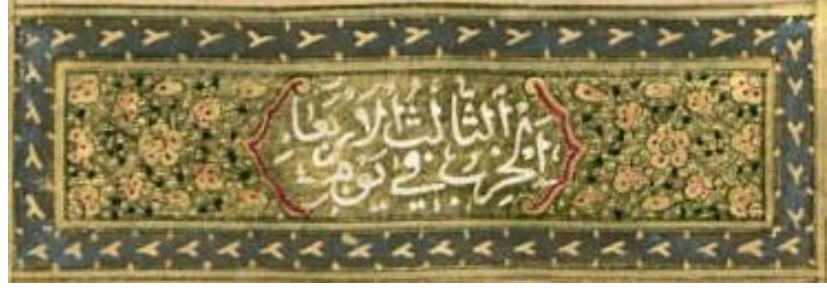 الحزب الثالث في يوم الاربعا